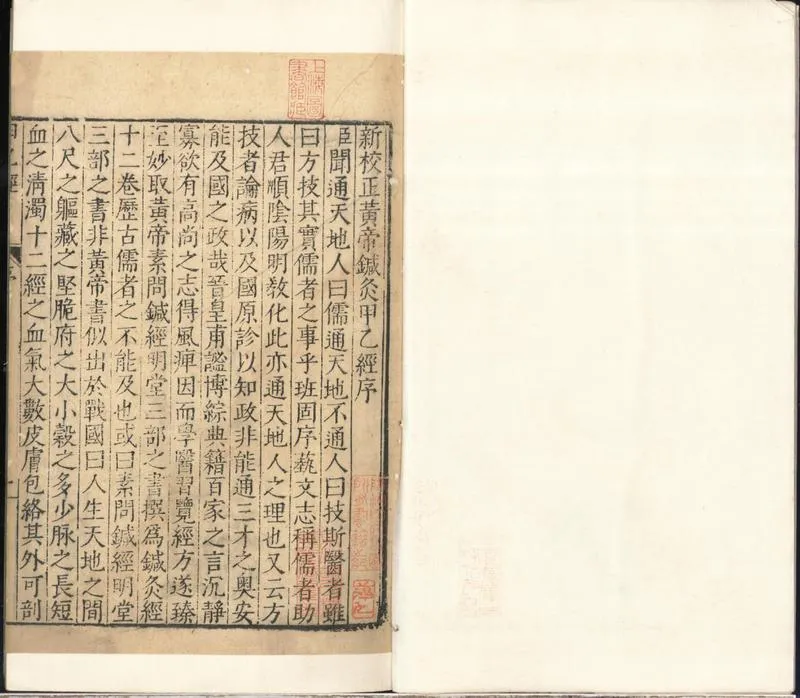 新校正黃帝鍼灸甲乙經序
臣聞通天地人曰儒通天地不通人曰技斯醫者雖
曰方技其實儒者之事乎班固序藝文志稱儒者助
人君順陰陽明敎化此亦通天地人之理也又云方
技者論病以及國原診以知政非能通三才之奧安
能及國之政哉晉皇甫謐博綜典籍百家之言沉靜
寡欲有高尚之志得風痺因而學醫習覽經方遂臻
至妙取黃帝素問鍼經明堂三部之書撰爲鍼灸經
十二卷歷古儒者之不能及也或曰素問鍼經明堂
三部之書非黃帝書似出於戰國曰人生天地之間
八尺之軀藏之堅脆府之大小穀之多少脉之長短
血之淸濁十二經之血氣大數皮膚包絡其外可剖
甲乙經 序 一
上海圖書館藏